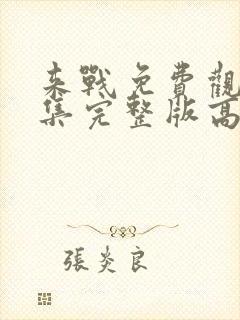 来戰免費觀
集完整版高
張炎良